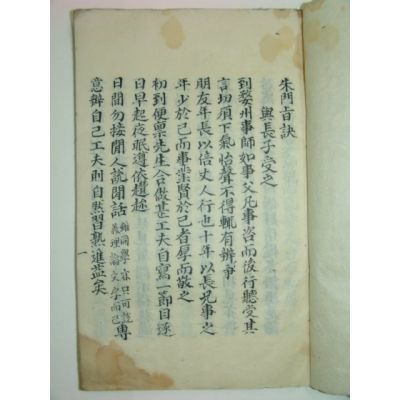 朱門旨訣
與長子受之
到婺州事師如事父凡事咨而後行聽受其
言切須下氣怡聲不得輒有辨爭
朋友年長以倍丈人行也十年以長兄事之
年少於己而事業賢於己者厚而敬之
初到便稟先生合做甚工夫自寫一節目逐
日早起夜眠遵依趲趁
日間勿接閒人說閒話雖同學亦只可說義理論文字而已專
意辦自己工夫則自然習熟進益矣
一